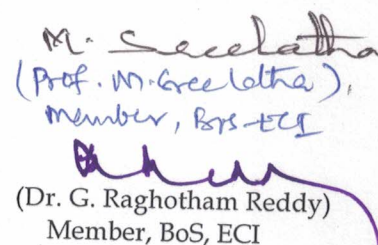 M. Sreelatha
(Prof. M. Sreelatha),
Member, BoS-ECI
(Dr. G. Raghotham Reddy)
Member, BoS, ECI